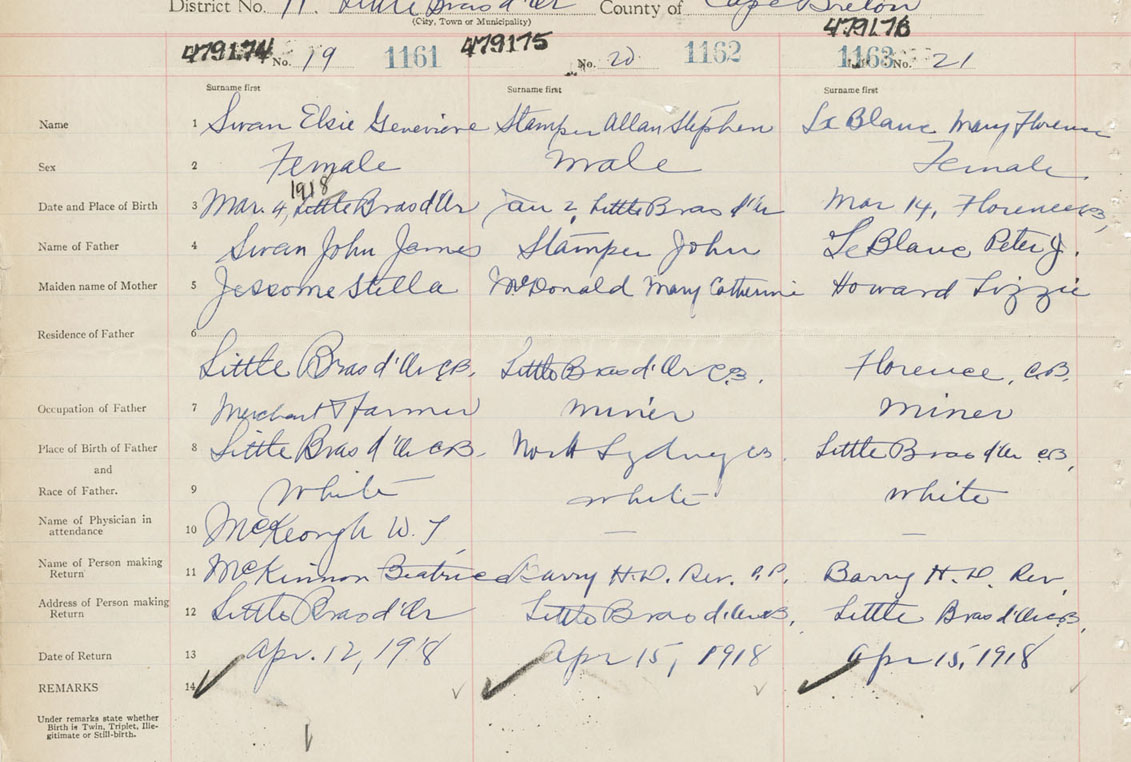 District No. 11. Little Bras d'Or County of Cape Breton
(City, Town or Municipality)
479174 No. 19 1161 479175 No. 20 1162 479176 1163 No. 21
Surname first Surname first Surname first
Name 1 Swan Elsie Genevieve Stamper Allan Stephen Le Blanc Mary Florence
Sex 2 Female male Female
1918
Date and Place of Birth 3 Mar. 4, Little Bras d'Or Jan 2, Little Bras d'Or Mar 14, Florence CB,
Name of Father 4 Swan John James Stamper John LeBlanc Peter J.
Maiden name of Mother 5 Jessome Stella McDonald Mary Catherine Howard Lizzie
Residence of Father 6
Little Bras d'Or C.B. Little Bras d'Or C.B. Florence, C.B.
Occupation of Father 7 Merchant & farmer miner miner
Place of Birth of Father 8 Little Bras d'Or C.B. North Sydney CB Little Bras d'Or C.B,
and
Race of Father. 9 White white white
Name of Physician in
attendance 10 McKeough W. J — —
Name of Person making
Return 11 McKinnon Beatrice Barry H.D. Rev. P.P. Barry H. D. Rev
Address of Person making
Return 12 Little Bras d'Or Little Bras d'Or C.B, Little Bras d'Or C.B,
Date of Return 13 Apr. 12, 1918 Apr 15, 1918 Apr 15, 1918
REMARKS 14
Under remarks state whether
Birth is Twin, Triplet, Ille-
gitimate or Still-birth.